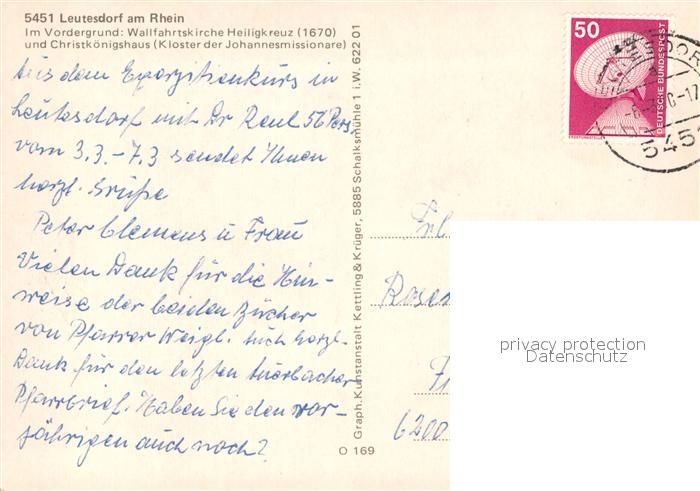 5451 Leutesdorf am Rhein
Im Vordergrund: Wallfahrtskirche Heiligkreuz (1670)
und Christkönigshaus (Kloster der Johannesmissionare)
Aus dem Exerzitienkurs in
Leutesdorf mit Dr Reul 56 Pers.
vom 3.3.-7.3 sendet Ihnen
herzl. Grüße
Peter Clemens u Frau
Vielen Dank für die Hin-
weise der beiden Bücher
von Pfarrer Weigl. Auch herzl.
Dank für den letzten Auerbacher
Pfarrbrief. Haben Sie den vor-
jährigen auch noch?
Graph. Kunstanstalt Kettling & Krüger, 5885 Schalksmühle 1 i.W. 622 01
O 169
50
DEUTSCHE BUNDESPOST
ERDFUNKSTELLE
545
Frl
Rosen
6200
privacy protection
Datenschutz